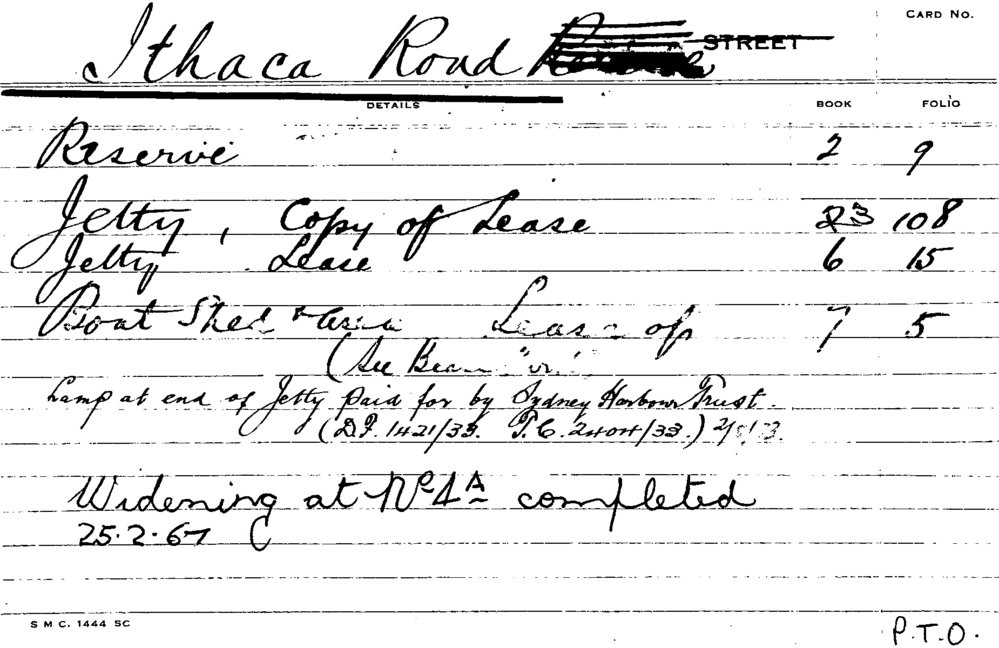 CARD No.
Ithaca Road STREET
DETAILS BOOK FOLIO
Reserve 2 9
Jetty, Copy of Lease 23 108
Jetty Lease 6 15
Boat Shed & Area Lease of 7 5
(See
Lamp at end of Jetty paid for by Sydney Harbour Trust.
(D.F. 1421/33. T.C. 2404/33.)
Widening at No 4A completed
25.2.67
S M C. 1444 5C
P.T.O.